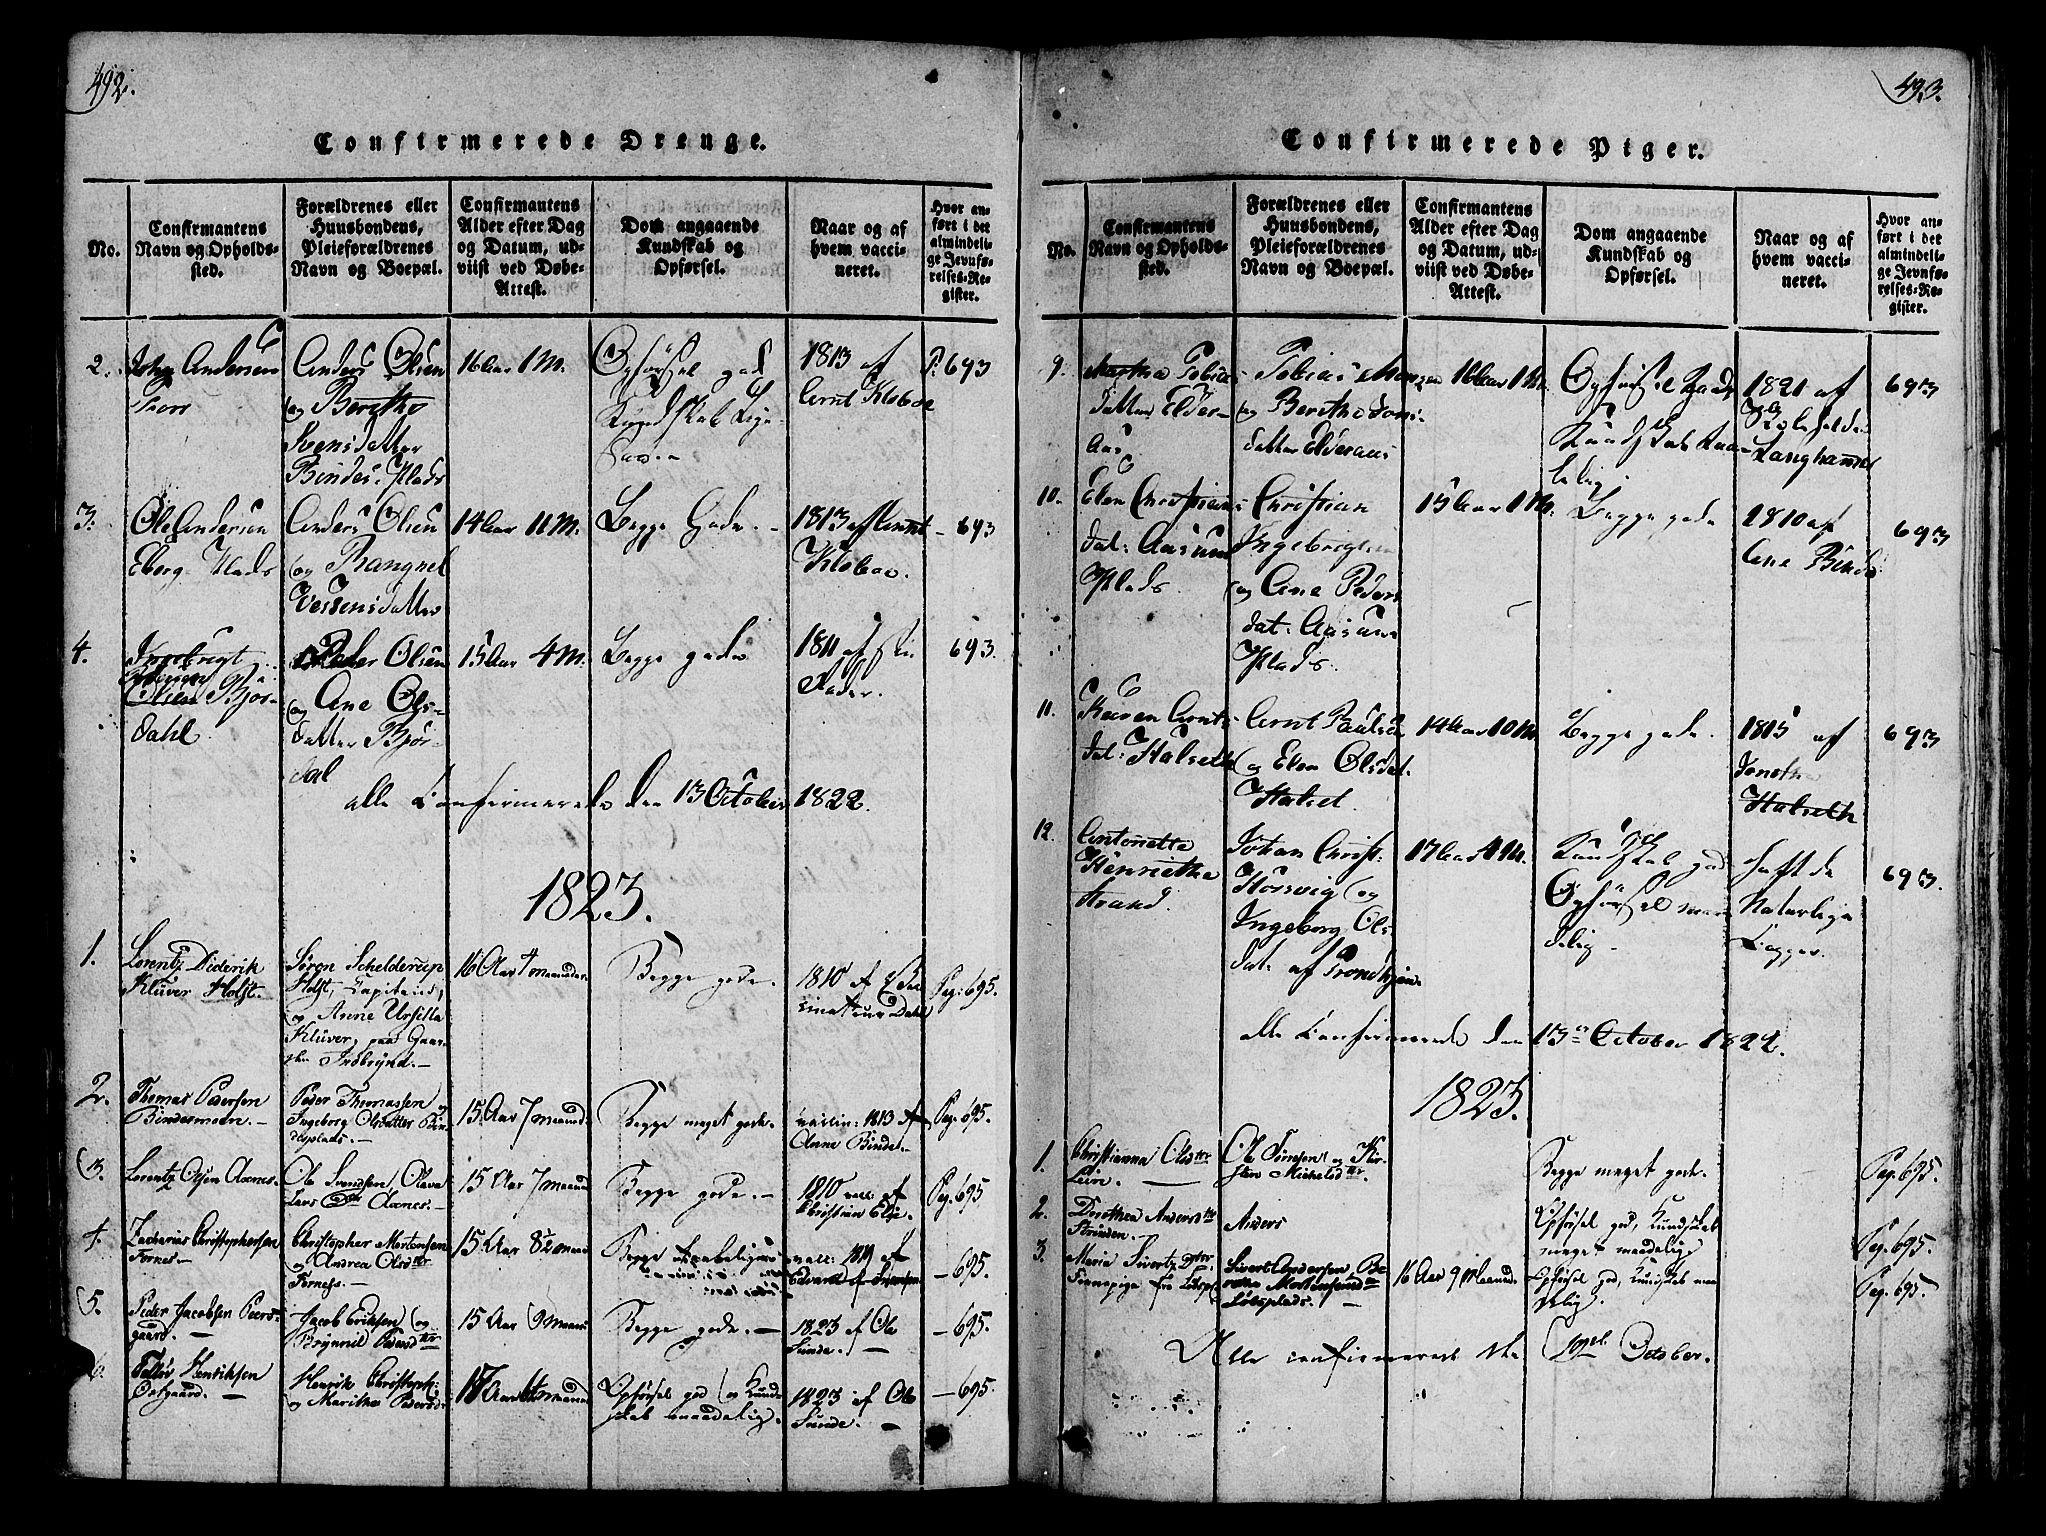 492.
Confirmerede Drenge.
No.
Confirmantens
Navn og Opholds-
sted.
Forældrenes eller
Huusbondens,
Pleieforældrenes
Navn og Boepæl.
Confirmantens
Alder efter Dag
og Datum, ud-
viist ved Døbe-
Attest.
Dom angaaende
Kundskab og
Opførsel.
Naar og af
hvem vacci-
neret.
Hvor an-
ført i det
almindeli-
ge Jevnfø-
relses-Re-
gister.
2. John Andersen
Anders Olsen
og Berethe
Svensdatter
Bindes Plads
16 Aar 1 M.
Opførsel god
Kundskab
1813 af
Arnt Kleboe
P: 693
3. Ole Andersen
Eberg Plads
Anders Olsen
og Rangnel
14 Aar 11 M.
Begge Gode.
1813 af Arnt
Kleboe.
- 693
4. Ingebrigt
Bjør-
dahl
Peder Olsen
og Ane Ols-
datter Bjør-
dal
15 Aar 4 M.
Begge gode
1811 af
693.
alle Confirmerede den 13 October 1822.
1823.
1. Lorentz Diderik
Klüver Holst.
Søren Schelderup
Holst, Capitaine,
og Anne Ursilla
Klüver, paa Gaar-
den Indbrynd.
16 Aar 4 maaneder
Begge gode.
1810 af
Dahl
Pag: 695.
2. Thomas Pedersen
Bindesmoen.
Peder Thomassen og
Ingeborg Olsdatter Bin-
desplads.
15 Aar 7 maaned
Begge meget gode.
vaccin: 1813 af
Anne Binde.
Pag. 695.
3. Lorentz Olsen Axnes.
Ole Svendsen, Olava
Lars Dtr Axnes.
15 Aar 7 maaned
Begge gode.
1810 vacc: af
Christian Elje.
Pag. 695
4. Zacharias Christophersen
Fornes.
Christopher Mortensen
og Andrea Olsdtr
Forness.
15 Aar 8½ maaned
Begge
vacc: 1819 af
Edvard
- 695.
5. Peder Jacobsen Peers-
gaard.
Jacob Eriksen og
Brynnil Pedersdtr
15 Aar 9 maaned
Begge gode.
1823 af Ole
Sunde.
- 695.
6. Henriksen
Østgaard.
Henrik Christoph:
og Marithe Pedersdr
17 Aar
Opførsel god og Kund-
skab maadelig.
1823 af Ole
Sunde.
- 695.
493.
Confirmerede Piger.
No.
Confirmantens
Navn og Opholds-
sted.
Forældrenes eller
Huusbondens,
Pleieforældrenes
Navn og Boepæl.
Confirmantens
Alder efter Dag
og Datum, ud-
viist ved Døbe-
Attest.
Dom angaaende
Kundskab og
Opførsel.
Naar og af
hvem vacci-
neret.
Hvor an-
ført i det
almindeli-
ge Jevnfø-
relses-Re-
gister.
9. Martha Tobias-
datter Elder-
aas
Tobias
og Berithe Jons-
datter Elderaas
16 Aar 1 M.
Opførsel Gode
Kundskab maa-
delig.
1821 af
Langhammer
693
10. Elen Christians-
dat: Aasum
Plads.
Christian
Ingebrigtsen
og Ane Peders
dat: Aasum
Plads.
15 Aar 1 M.
Begge gode
1810 af
Ane Binde
693
11. Karen Arnts-
dat: Halseth
Arnt Paulsen
og Elen Olsdat.
Halset.
14 Aar 10 M
Begge gode.
1815 af
Halseth
693
12. Antonette
Henriethe
Strand.
Johan Christ:
og
Ingeborg Ols
dat: af Trondhjem.
17 Aar 4 M.
Kundskab god
Opførsel maa-
delig
haft de
Naturlige
Kopper.
693.
alle Confirmerede den 13de October 1822.
1823.
1. Christianna Olsdtr
Leire.
Ole Simesen og Kir-
sten Michelsdtr.
Begge meget gode.
Pag. 695.
2. Dorothea Andersdtr
Stranden.
Anders
Opførsel god, Kundskab
meget maadelig
Pag. 695.
3. Maria Sivertz Dtr.
Finnepige fra
Sivert Andersen, Be-
retha Mortensendtr
16 Aar 9 Maaned
Opførsel god, Kundskab maa-
delig.
Pag. 695.
Alle confirmerede den 19de October.